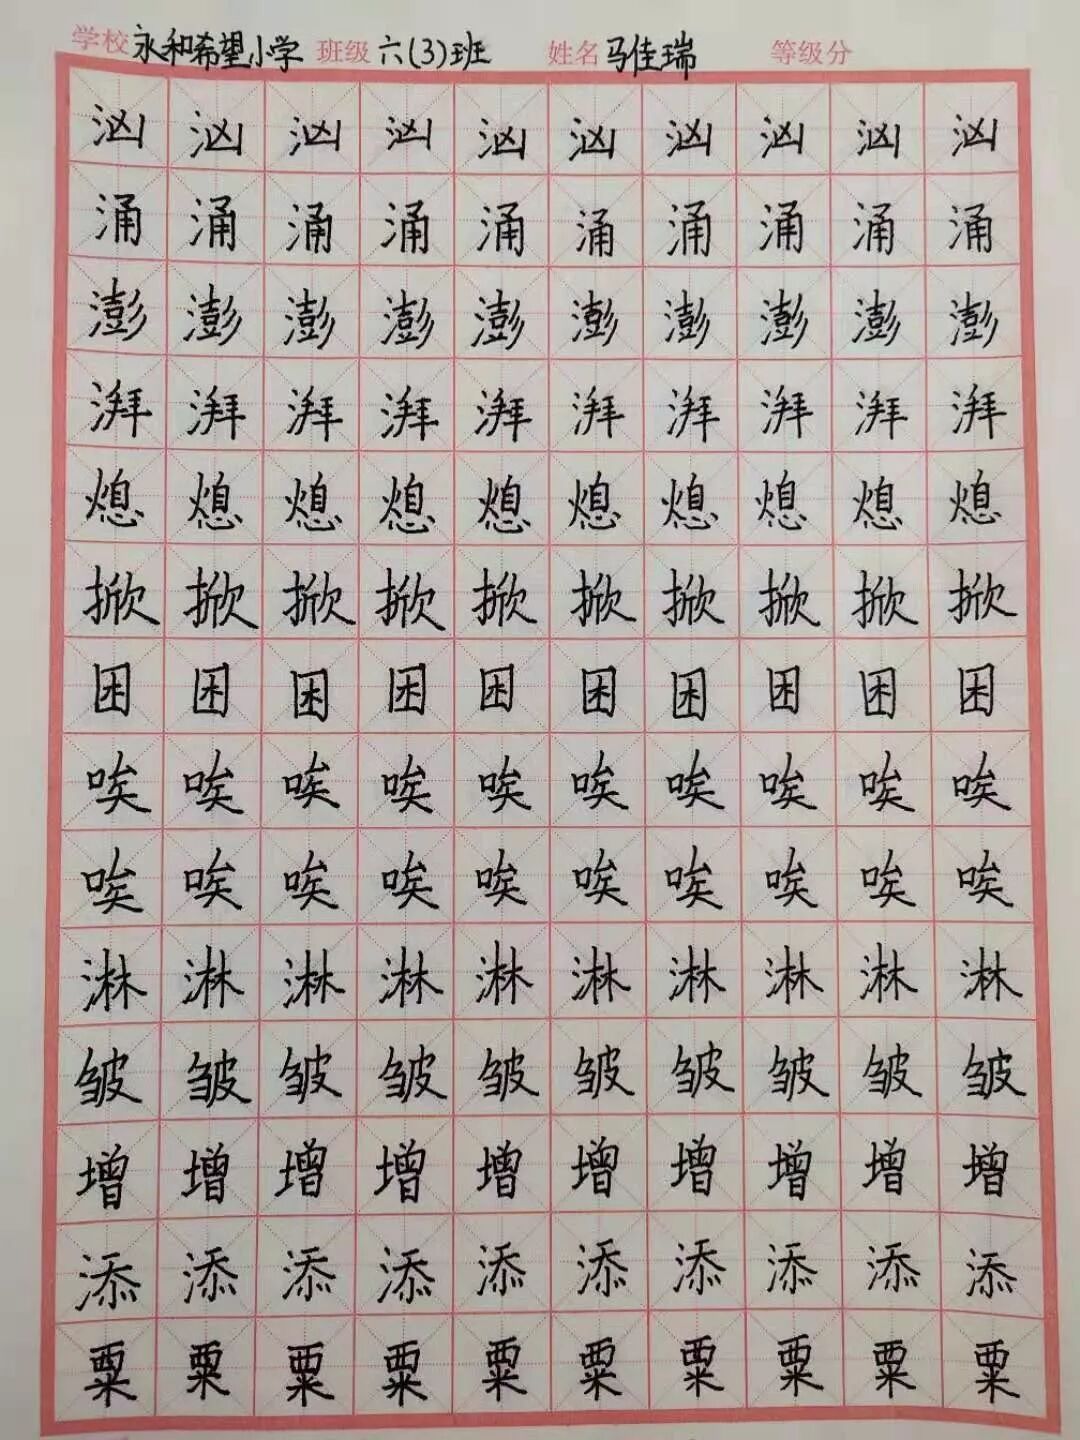 学校 永和希望小学 班级 六(3)班 姓名 马佳瑞 等级分
汹 汹 汹 汹 汹 汹 汹 汹 汹 汹
涌 涌 涌 涌 涌 涌 涌 涌 涌 涌
澎 澎 澎 澎 澎 澎 澎 澎 澎 澎
湃 湃 湃 湃 湃 湃 湃 湃 湃 湃
熄 熄 熄 熄 熄 熄 熄 熄 熄 熄
掀 掀 掀 掀 掀 掀 掀 掀 掀 掀
困 困 困 困 困 困 困 困 困 困
唉 唉 唉 唉 唉 唉 唉 唉 唉 唉
唉 唉 唉 唉 唉 唉 唉 唉 唉 唉
淋 淋 淋 淋 淋 淋 淋 淋 淋 淋
皱 皱 皱 皱 皱 皱 皱 皱 皱 皱
增 增 增 增 增 增 增 增 增 增
添 添 添 添 添 添 添 添 添 添
粟 粟 粟 粟 粟 粟 粟 粟 粟 粟